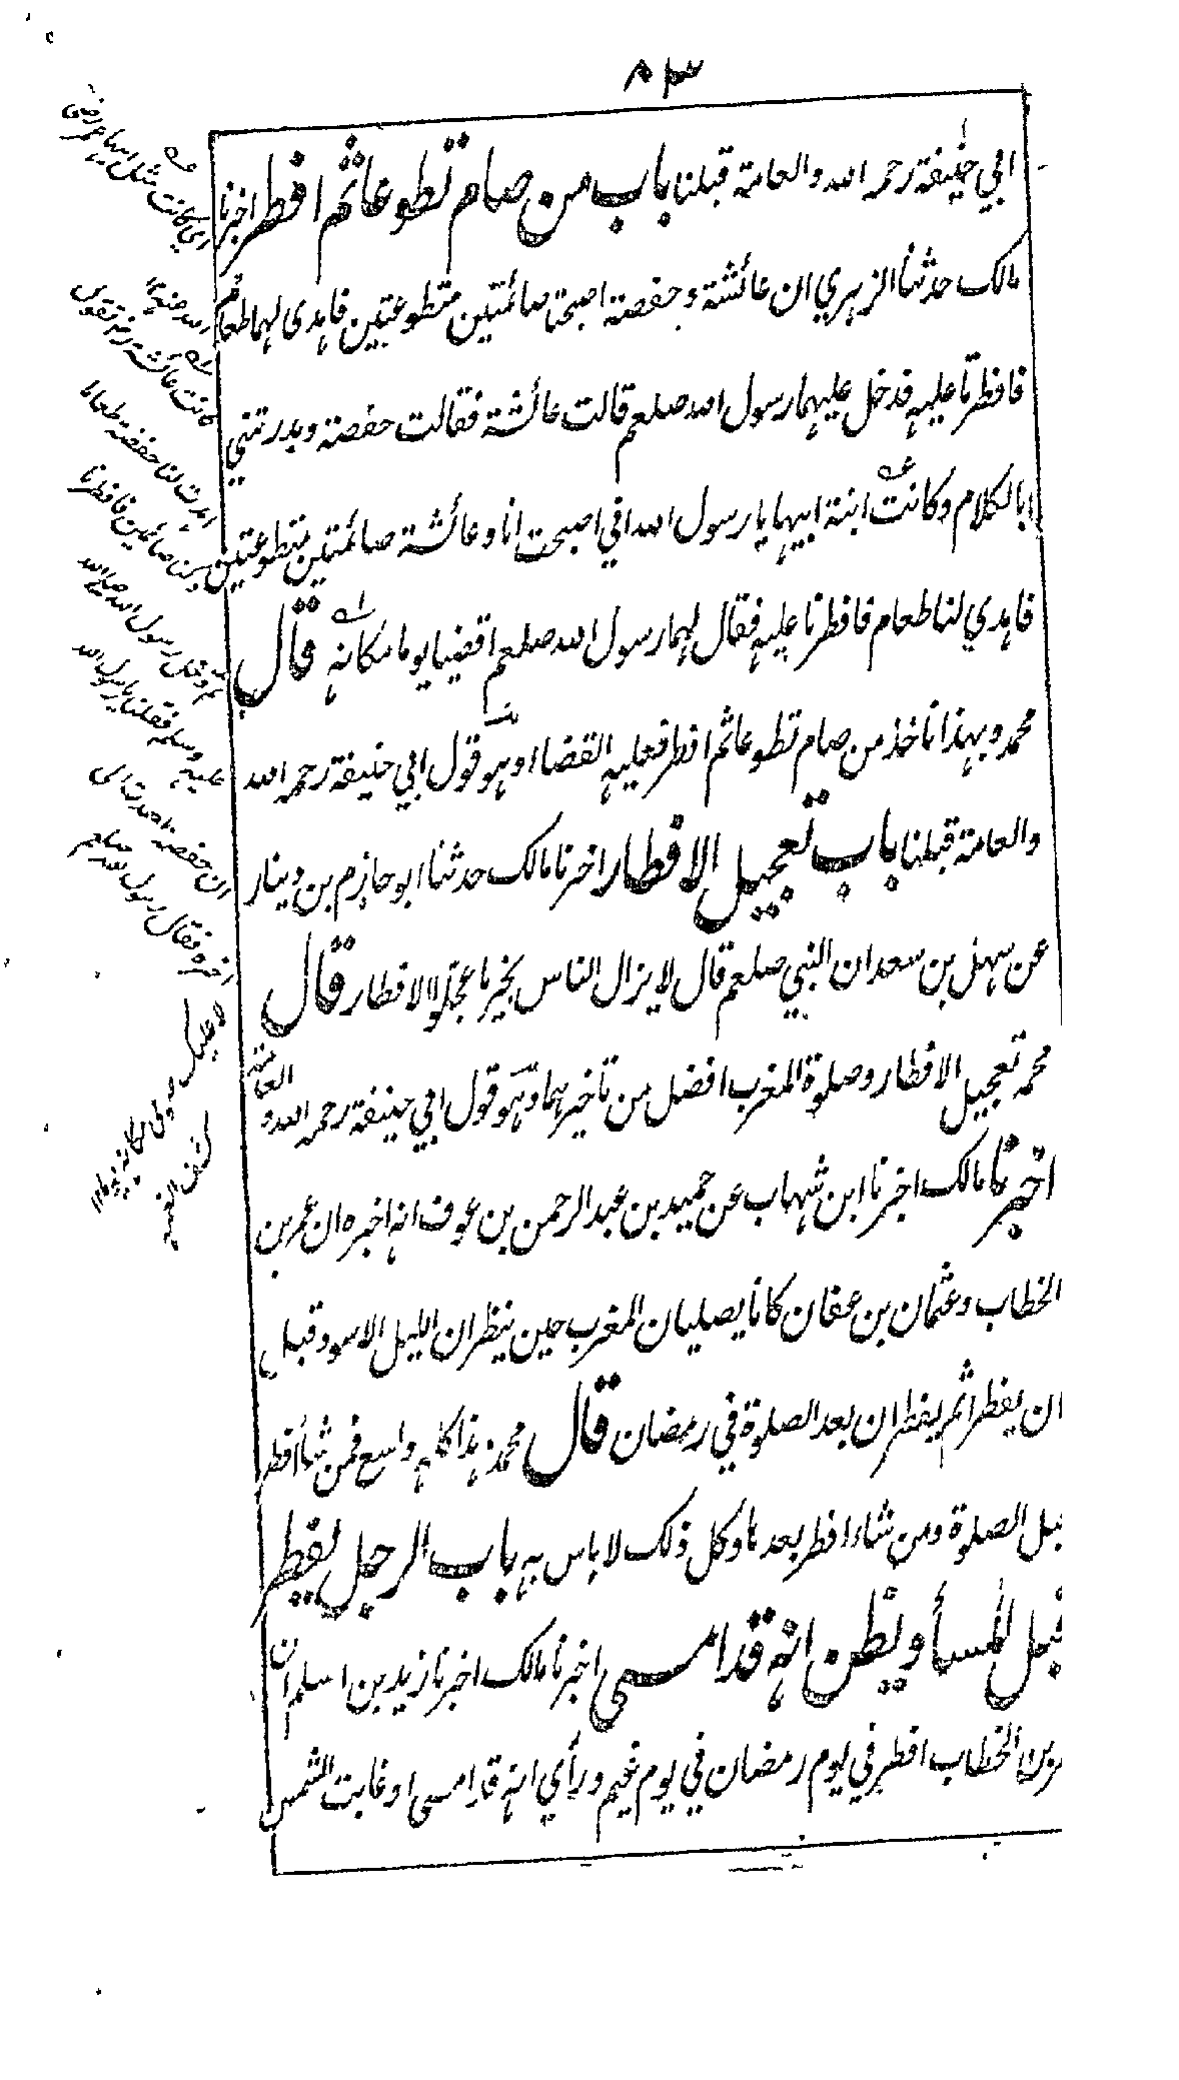 ٨٣
ابي حنيفة رحمه الله والعامة قبلنا باب من صام تطوعا ثم افطر اخبرنا
مالك حدثنا الزهري ان عائشة وحفصة اصبحتا صائمتين متطوعتين فاهدى لهما طعام
فافطرتا عليه فدخل عليهما رسول الله صلعم قالت عائشة فقالت حفصة وبدرتني
بالكلام وكانت ابنة ابيها يا رسول الله اني اصبحت انا وعائشة صائمتين متطوعتين
فاهدي لنا طعام فافطرنا عليه فقال لهما رسول الله صلعم اقضيا يوما مكانه قال
محمد وبهذا ناخذ من صام تطوعا ثم افطر فعليه القضاء وهو قول ابي حنيفة رحمه الله
والعامة قبلنا باب تعجيل الافطار اخبرنا مالك حدثنا ابو حازم بن دينار
عن سهل بن سعد ان النبي صلعم قال لا يزال الناس بخير ما عجلوا الافطار قال
محمد تعجيل الافطار وصلوة المغرب افضل من تأخيرهما وهو قول ابي حنيفة رحمه الله والعامة
اخبرنا مالك اخبرنا ابن شهاب عن حميد بن عبد الرحمن بن عوف انه اخبره ان عمر بن
الخطاب وعثمان بن عفان كانا يصليان المغرب حين ينظران الليل الاسود قبل
ان يفطرا ثم يفطران بعد الصلوة في رمضان قال محمد هذا كله واسع فمن شاء افطر
قبل الصلوة ومن شاء افطر بعدها وكل ذلك لا باس به باب الرجل يفطر
قبل المسأ ويظن انه قد امسى اخبرنا مالك اخبرنا زيد بن اسلم ان
عمر بن الخطاب افطر في يوم رمضان في يوم غيم ورأي انه قد امسى او غابت الشمس
اي كانت مثل ابيها عمر رضى
الله عنه ١٢
كانت عائشة رض تقول
اهدت لنا حفصة طعاما
ونحن صائمين فافطرنا
ثم دخل رسول الله صلى الله
عليه وسلم فقلنا يا رسول الله
ان حفصة اهدت الى
اخره فقال رسول الله صلعم
لا عليكما صوما مكانه يوما ١٢
كشف الغمة